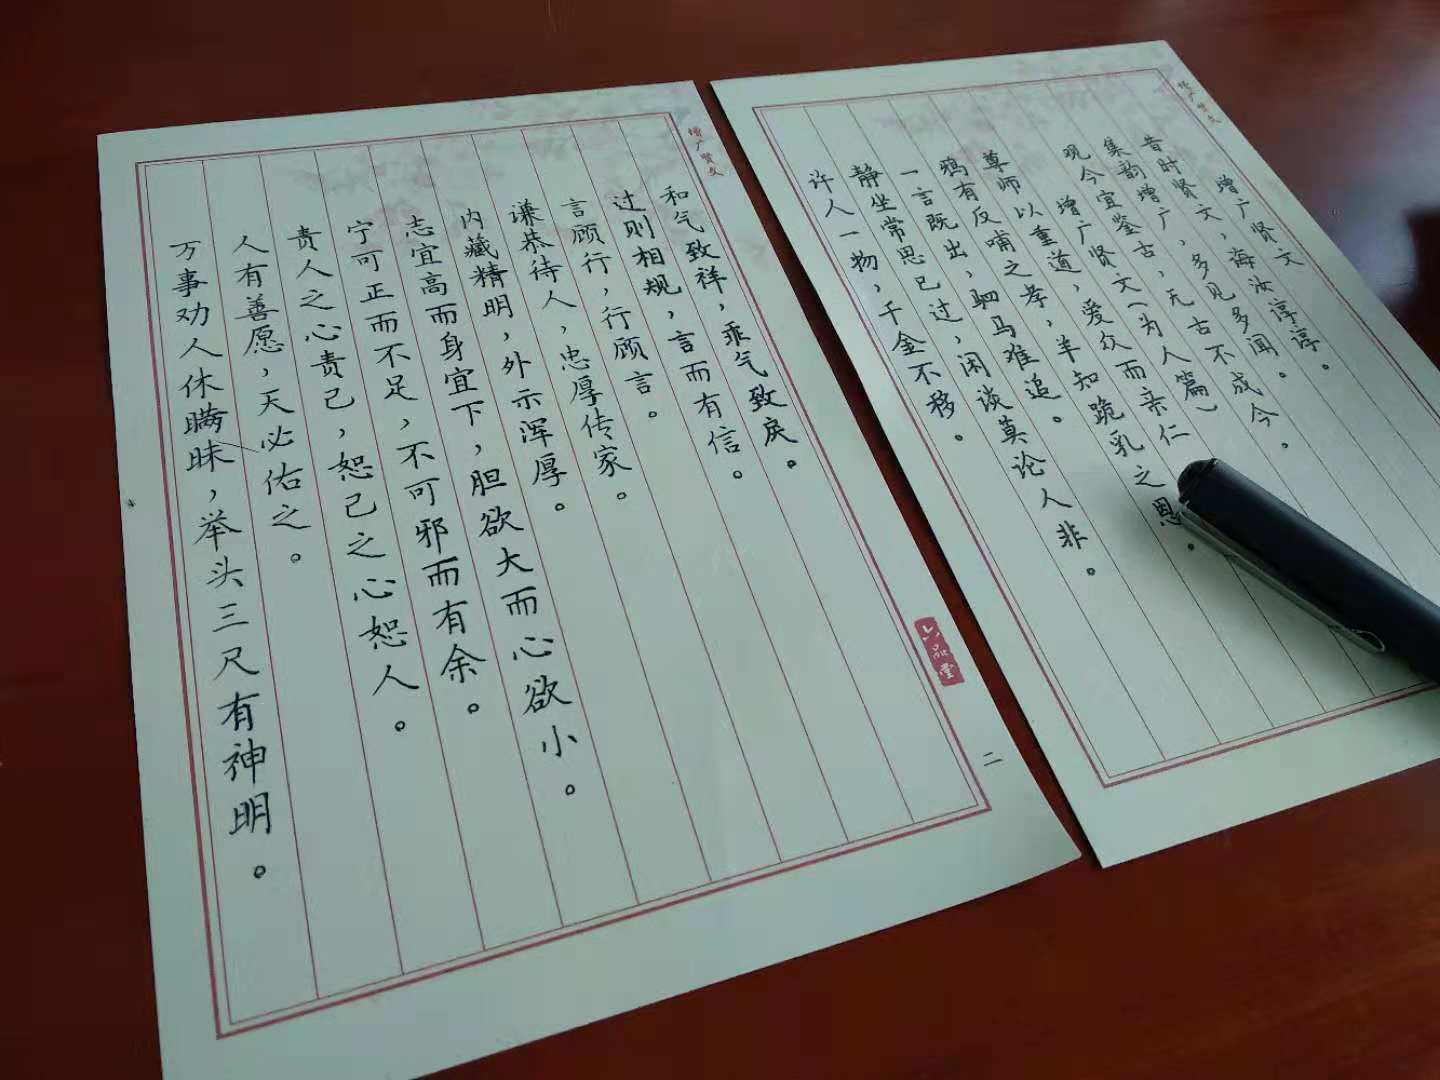 增广贤文
增广贤文
昔时贤文，海汝谆谆。
集韵增广，多见多闻。
观今宜鉴古，无古不成今。
增广贤文（为人篇）
尊师以重道，爱众而亲仁
鸦有反哺之孝，羊知跪乳之恩。
一言既出，驷马难追。
静坐常思己过，闲谈莫论人非。
许人一物，千金不移。
增广贤文
和气致祥，乖气致戾。
过则相规，言而有信。
言顾行，行顾言。
谦恭待人，忠厚传家。
内藏精明，外示浑厚。
志宜高而身宜下，胆欲大而心欲小。
宁可正而不足，不可邪而有余。
责人之心责己，恕己之心恕人。
人有善愿，天必佑之。
万事劝人休瞒昧，举头三尺有神明。
六品堂
二